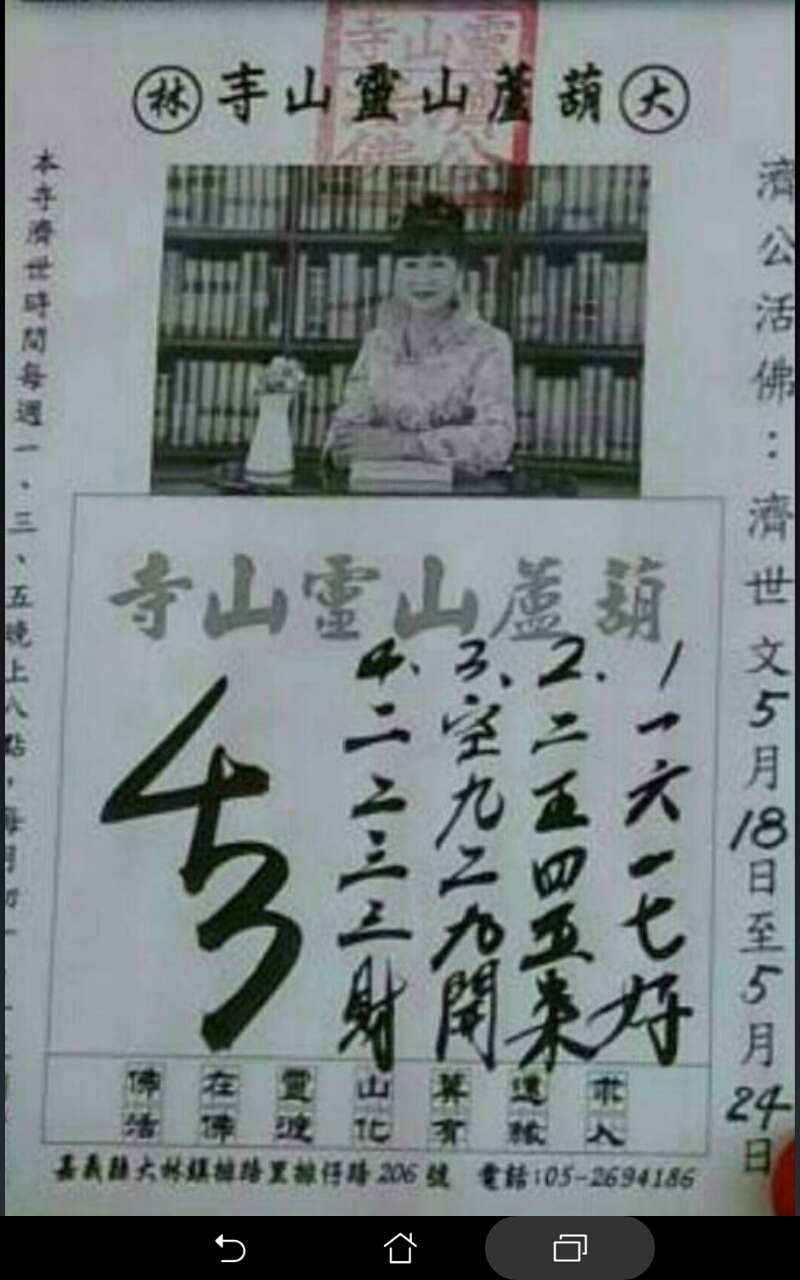 大葫蘆山靈山寺林
濟公活佛：濟世文5月18日至5月24日
葫蘆山靈山寺
1 一六一七好
2. 二五四五來
3、空九二九開
4、二二三三財
求道莫山靈在佛
人緣有化渡佛活
嘉義縣大林鎮排路里排仔路206號 電話:05-2694186
本寺濟世時間每週一、三、五晚上八點，每月初一